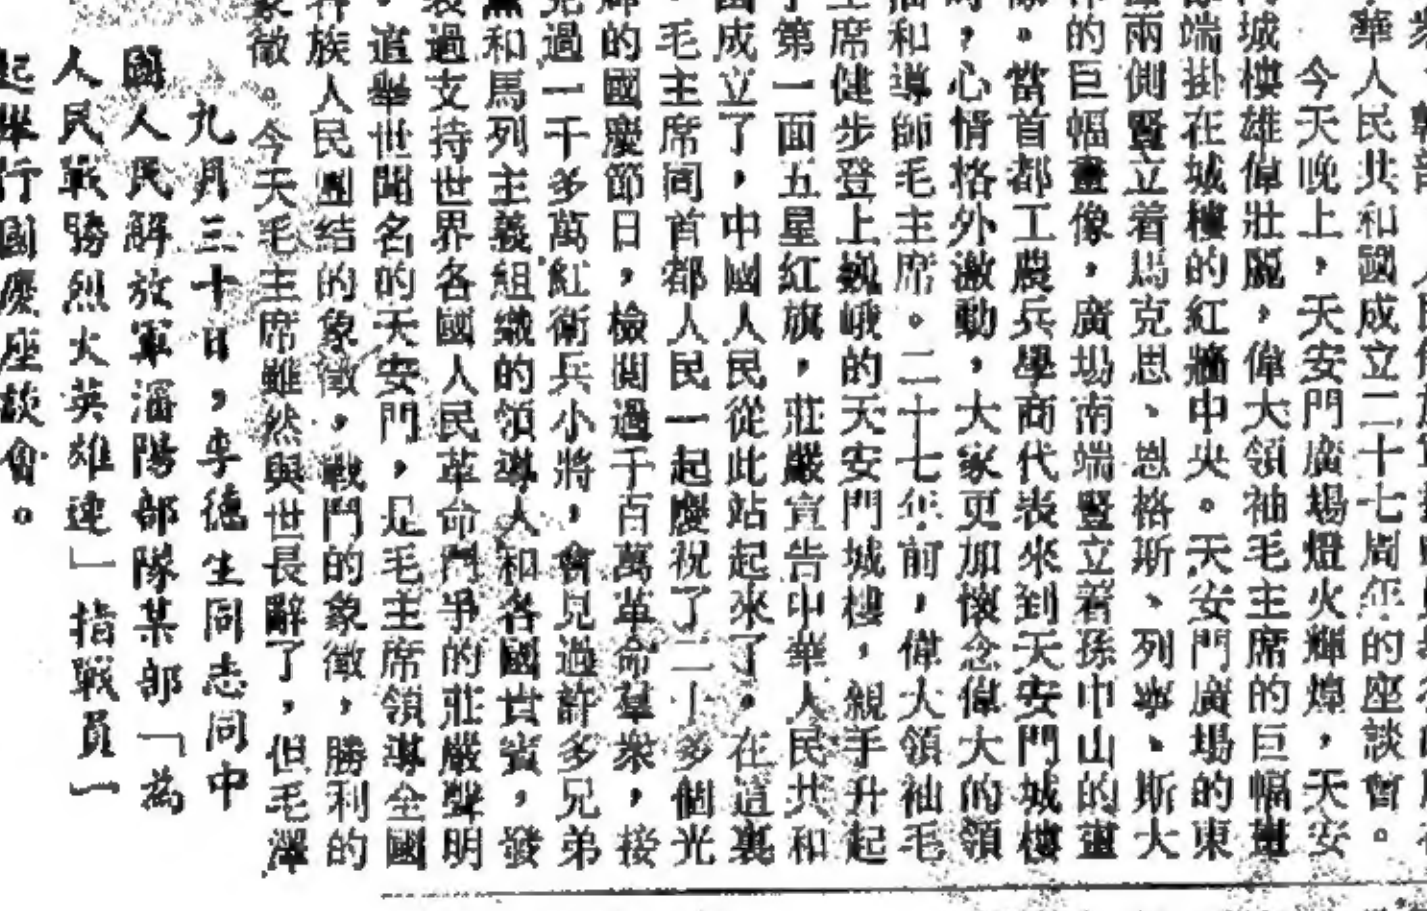 華人民共和國成立二十七周年的座談會。
今天晚上，天安門廣場燈火輝煌，天安
門城樓雄偉壯麗，偉大領袖毛主席的巨幅畫
端掛在城樓的紅牆中央。天安門廣場的東
兩側豎立着馬克思、恩格斯、列寧、斯大
的巨幅畫像，廣場南端豎立著孫中山的畫
像。當首都工農兵學商代表來到天安門城樓
時，心情格外激動，大家更加懷念偉大的領
袖和導師毛主席。二十七年前，偉大領袖毛
主席健步登上巍峨的天安門城樓，親手升起
了第一面五星紅旗，莊嚴宣告中華人民共和
國成立了，中國人民從此站起來了。在這裏
，毛主席同首都人民一起慶祝了二十多個光
輝的國慶節日，檢閱過千百萬革命羣衆，接
見過一千多萬紅衛兵小將，會見過許多兄弟
黨和馬列主義組織的領導人和各國貴賓，發
表過支持世界各國人民革命鬥爭的莊嚴聲明
，這舉世聞名的天安門，是毛主席領導全國
各族人民團結的象徵，戰鬥的象徵，勝利的
象徵。今天毛主席雖然與世長辭了，但毛澤
九月三十日，李德生同志同中
國人民解放軍瀋陽部隊某部「為
人民戰勝烈火英雄連」指戰員一
起舉行國慶座談會。